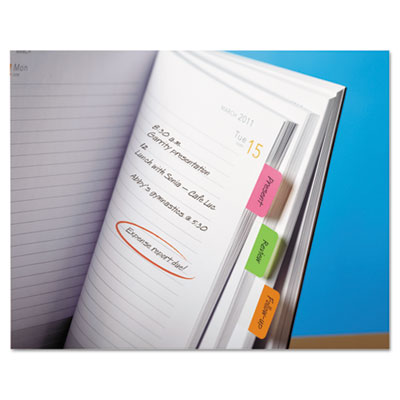 Mon
MARCH 2011
Tue
15
8:30 a.m.
Garrity presentation
12
Lunch with Sonia – Cafe Luc
Abby's gymnastics @ 5:30
Expense report due!
Present
Review
Follow-up